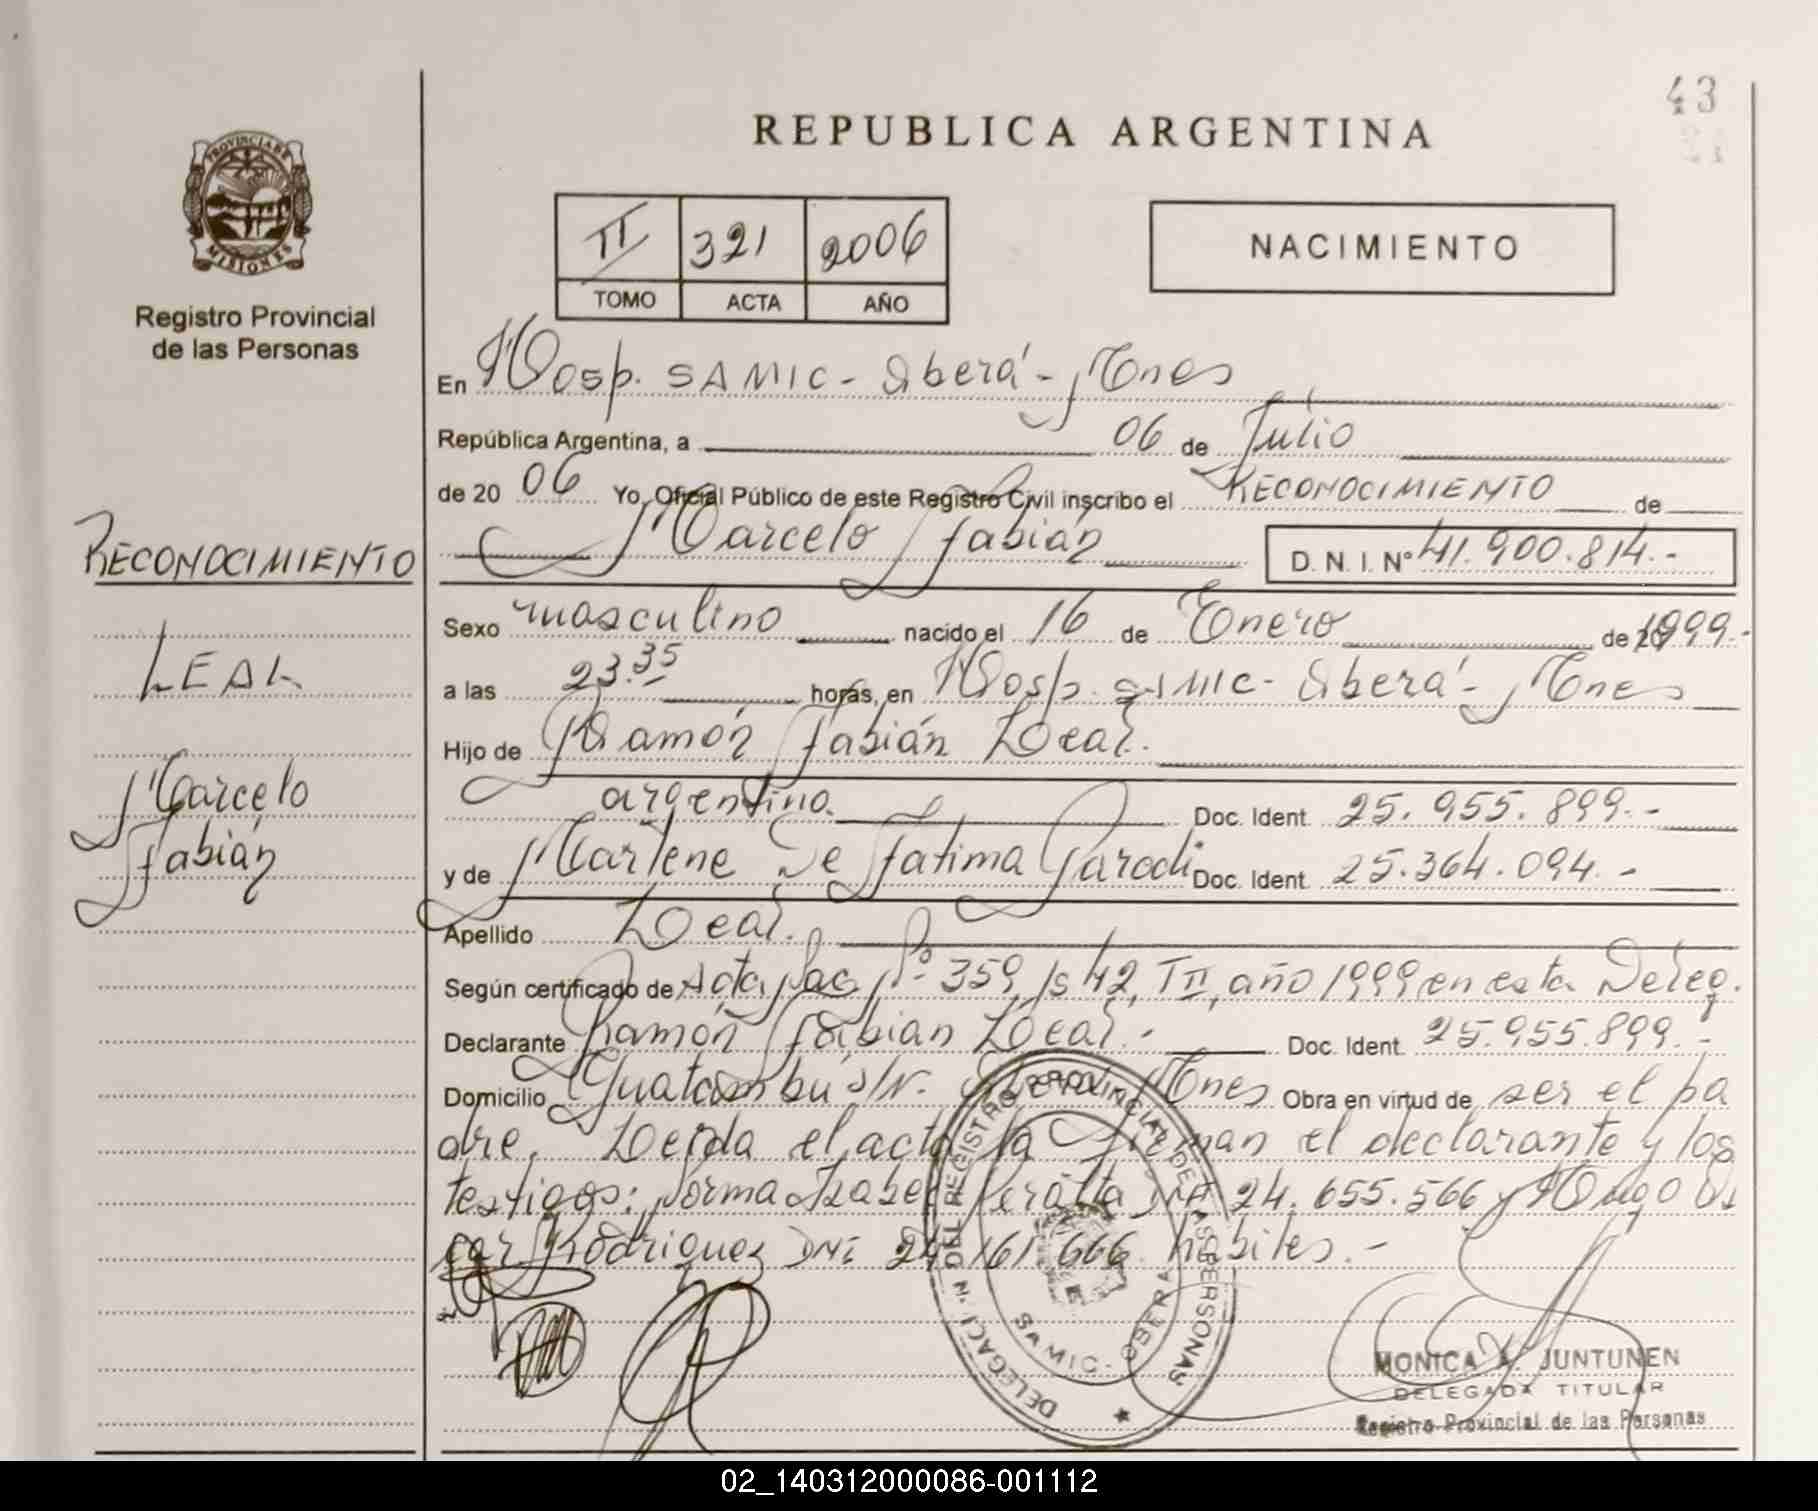 43
REPUBLICA ARGENTINA
PROVINCIA DE MISIONES
Registro Provincial
de las Personas
II 321 2006
TOMO ACTA AÑO
NACIMIENTO
En Hosp. SAMIC - Oberá - Mnes
República Argentina, a 06 de Julio
de 20 06 Yo, Oficial Público de este Registro Civil inscribo el RECONOCIMIENTO de
Marcelo Fabián D. N. I. Nº 41.900.814.-
RECONOCIMIENTO
LEAL
Marcelo
Fabián
Sexo masculino nacido el 16 de Enero de 1999.-
a las 23.35 horas, en Hosp. SAMIC - Oberá - Mnes
Hijo de Ramón Fabián Leal.
argentino. Doc. Ident. 25.955.899.-
y de Marlene De Fatima Parodi Doc. Ident. 25.364.094.-
Apellido Leal.
Según certificado de Acta Nac. Nº 359, fs 42, TII, año 1999 en esta Deleg.
Declarante Ramón Fabian Leal.- Doc. Ident. 25.955.899.-
Domicilio Guatambú s/N. Oberá Mnes Obra en virtud de ser el pa
dre. Leída el acta la firman el declarante y los
testigos: Norma Izabel Peralta DNI 24.655.566 y Hugo Os
car Rodriguez DNI 24.161.666 hábiles.-
DELEGACION DEL REGISTRO PROVINCIAL DE LAS PERSONAS
SAMIC - OBERA
MONICA A. JUNTUNEN
DELEGADA TITULAR
Registro Provincial de las Personas
02_140312000086-001112